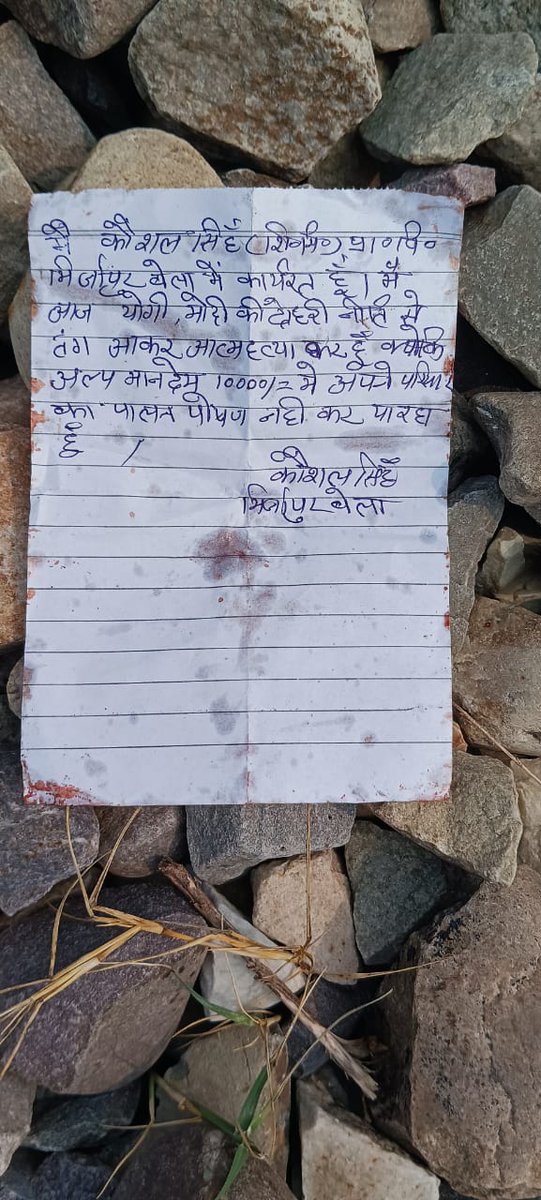 मै कौशल सिहँ (शि०मि०) प्रा०वि०
मिर्जापुर बेला में कार्यरत हूँ। मै
आज योगी, मोदी की दोहरी नीति से
तंग आकर आत्महत्या कर हूँ क्योकि
अल्प मानदेय 10000/= मे अपने परिवार
का पालन पोषण नही कर पा रहा
हूँ ।
कौशल सिहँ
मिर्जापुर बेला